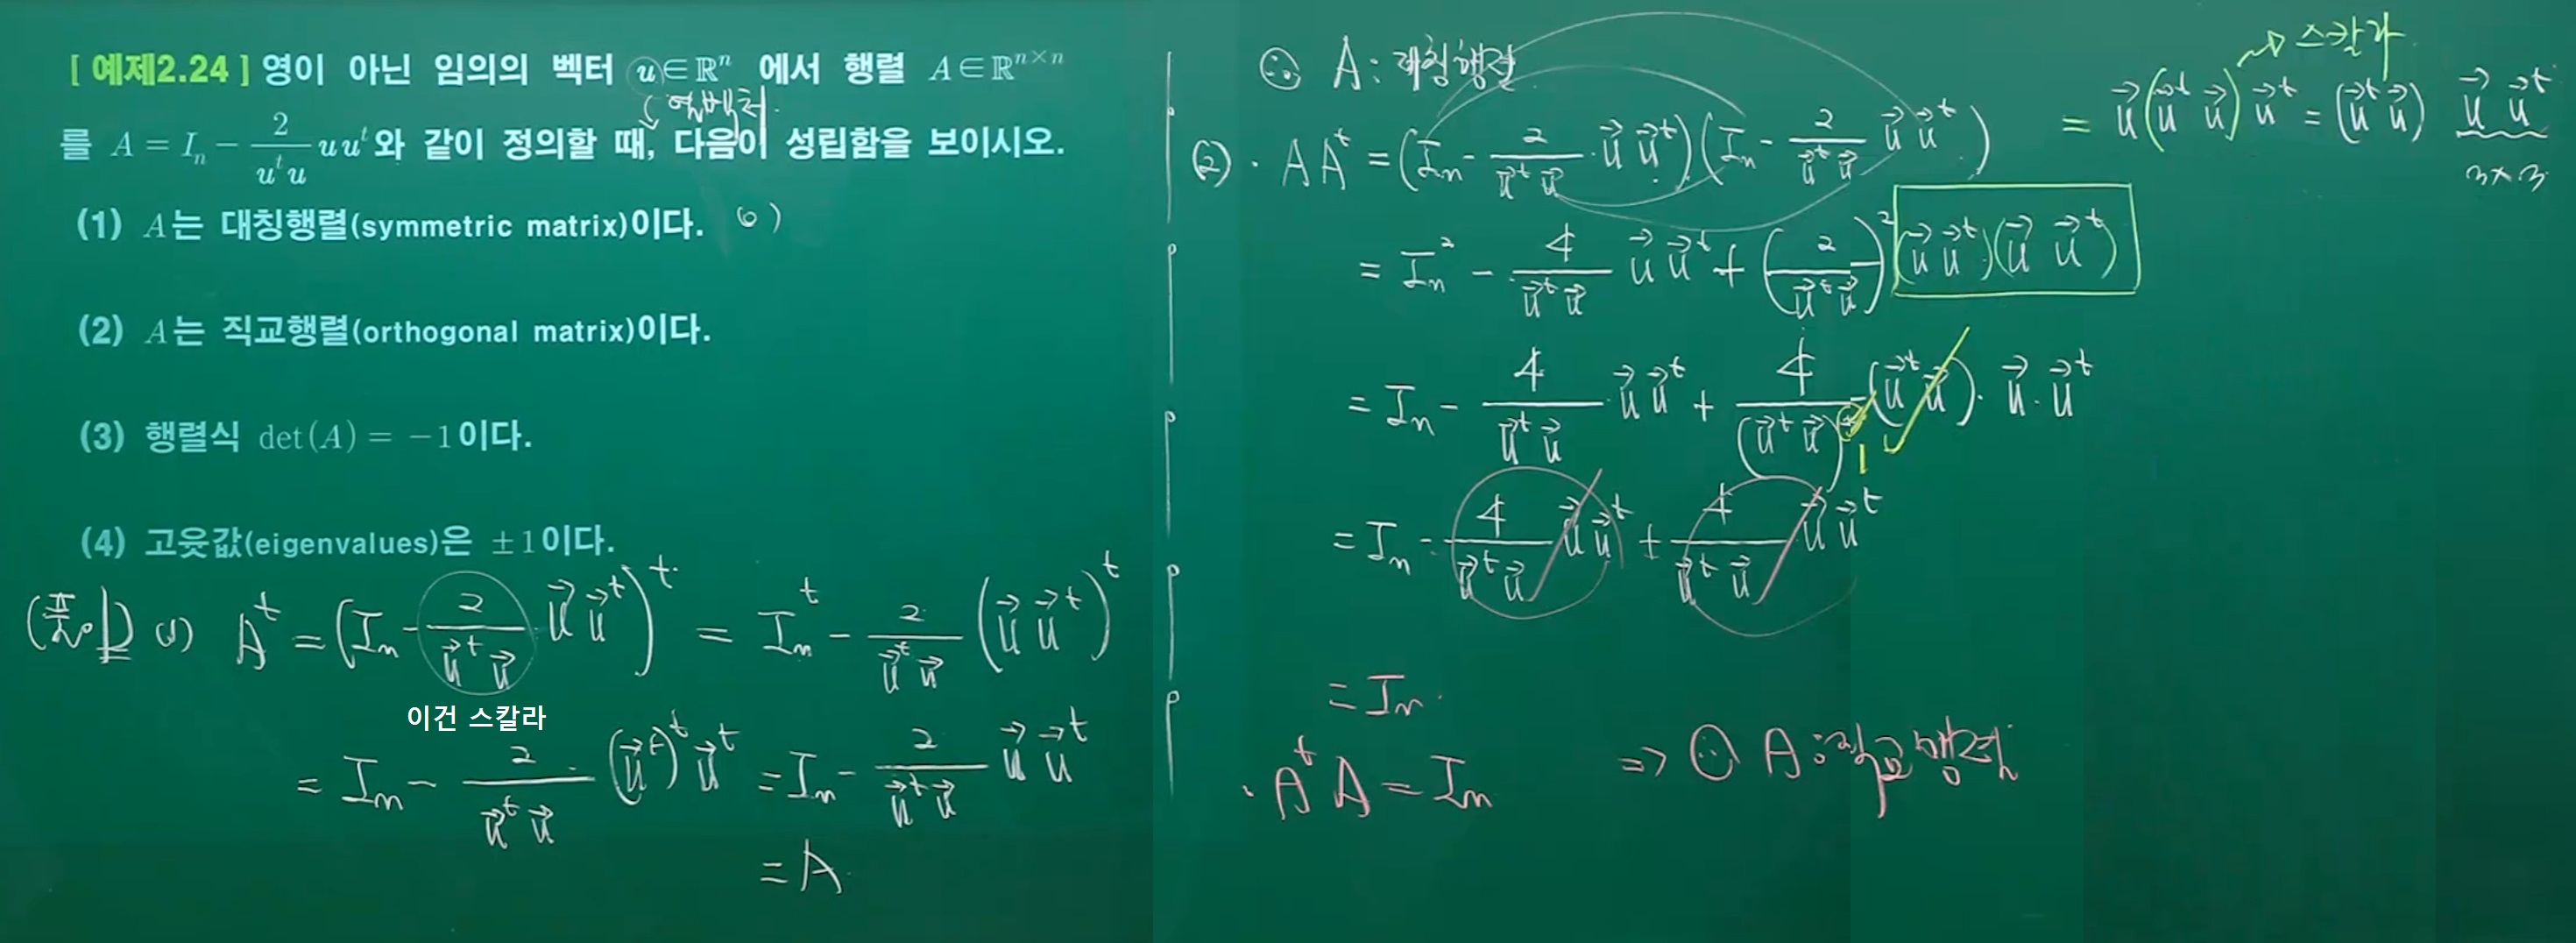 [ 예제2.24 ] 영이 아닌 임의의 벡터 u∈ℝⁿ 에서 행렬 A∈ℝⁿˣⁿ
열벡터
를 A = Iₙ − 2/(uᵗu) u uᵗ와 같이 정의할 때, 다음이 성립함을 보이시오.
(1) A는 대칭행렬(symmetric matrix)이다.
(2) A는 직교행렬(orthogonal matrix)이다.
(3) 행렬식 det(A) = −1이다.
(4) 고윳값(eigenvalues)은 ±1이다.
(풀이) (1) Aᵗ = (Iₙ − 2/(u⃗ᵗu⃗) u⃗ u⃗ᵗ)ᵗ = Iₙᵗ − 2/(u⃗ᵗu⃗) (u⃗ u⃗ᵗ)ᵗ
이건 스칼라
= Iₙ − 2/(u⃗ᵗu⃗) · (u⃗ᵗ)ᵗ u⃗ᵗ = Iₙ − 2/(u⃗ᵗu⃗) u⃗ u⃗ᵗ
= A
∴ A : 대칭행렬
(2) · AAᵗ = (Iₙ − 2/(u⃗ᵗu⃗) · u⃗ u⃗ᵗ)(Iₙ − 2/(u⃗ᵗu⃗) u⃗ u⃗ᵗ)
= Iₙ² − 4/(u⃗ᵗu⃗) u⃗ u⃗ᵗ + (2/(u⃗ᵗu⃗))² (u⃗ u⃗ᵗ)(u⃗ u⃗ᵗ)
→ 스칼라
= u⃗(u⃗ᵗ u⃗) u⃗ᵗ = (u⃗ᵗ u⃗) u⃗ u⃗ᵗ
n×n
= Iₙ − 4/(u⃗ᵗu⃗) · u⃗ u⃗ᵗ + 4/(u⃗ᵗu⃗)² (u⃗ᵗ u⃗) · u⃗ · u⃗ᵗ
1
= Iₙ − 4/(u⃗ᵗu⃗) u⃗ u⃗ᵗ + 4/(u⃗ᵗu⃗) u⃗ u⃗ᵗ
= Iₙ
· AᵗA = Iₙ ⇒ ∴ A : 직교행렬